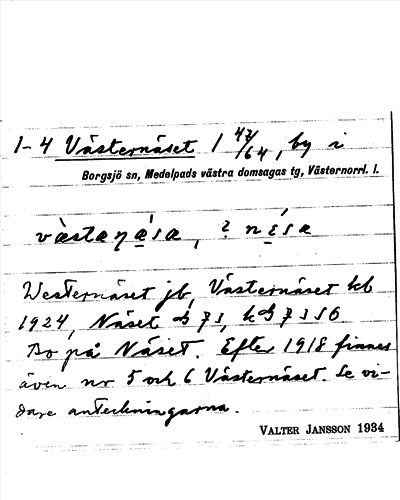 1-4 Västernäset 1 47/64, by i
Borgsjö sn, Medelpads västra domsagas tg, Västernorrl. l.
Westernäset jb, Västernäset kb
1924, Näset
Bo på Näset. Efter 1918 finnes
även nr 5 och 6 Västernäset. Se vi-
dare anteckningarna.
VALTER JANSSON 1934